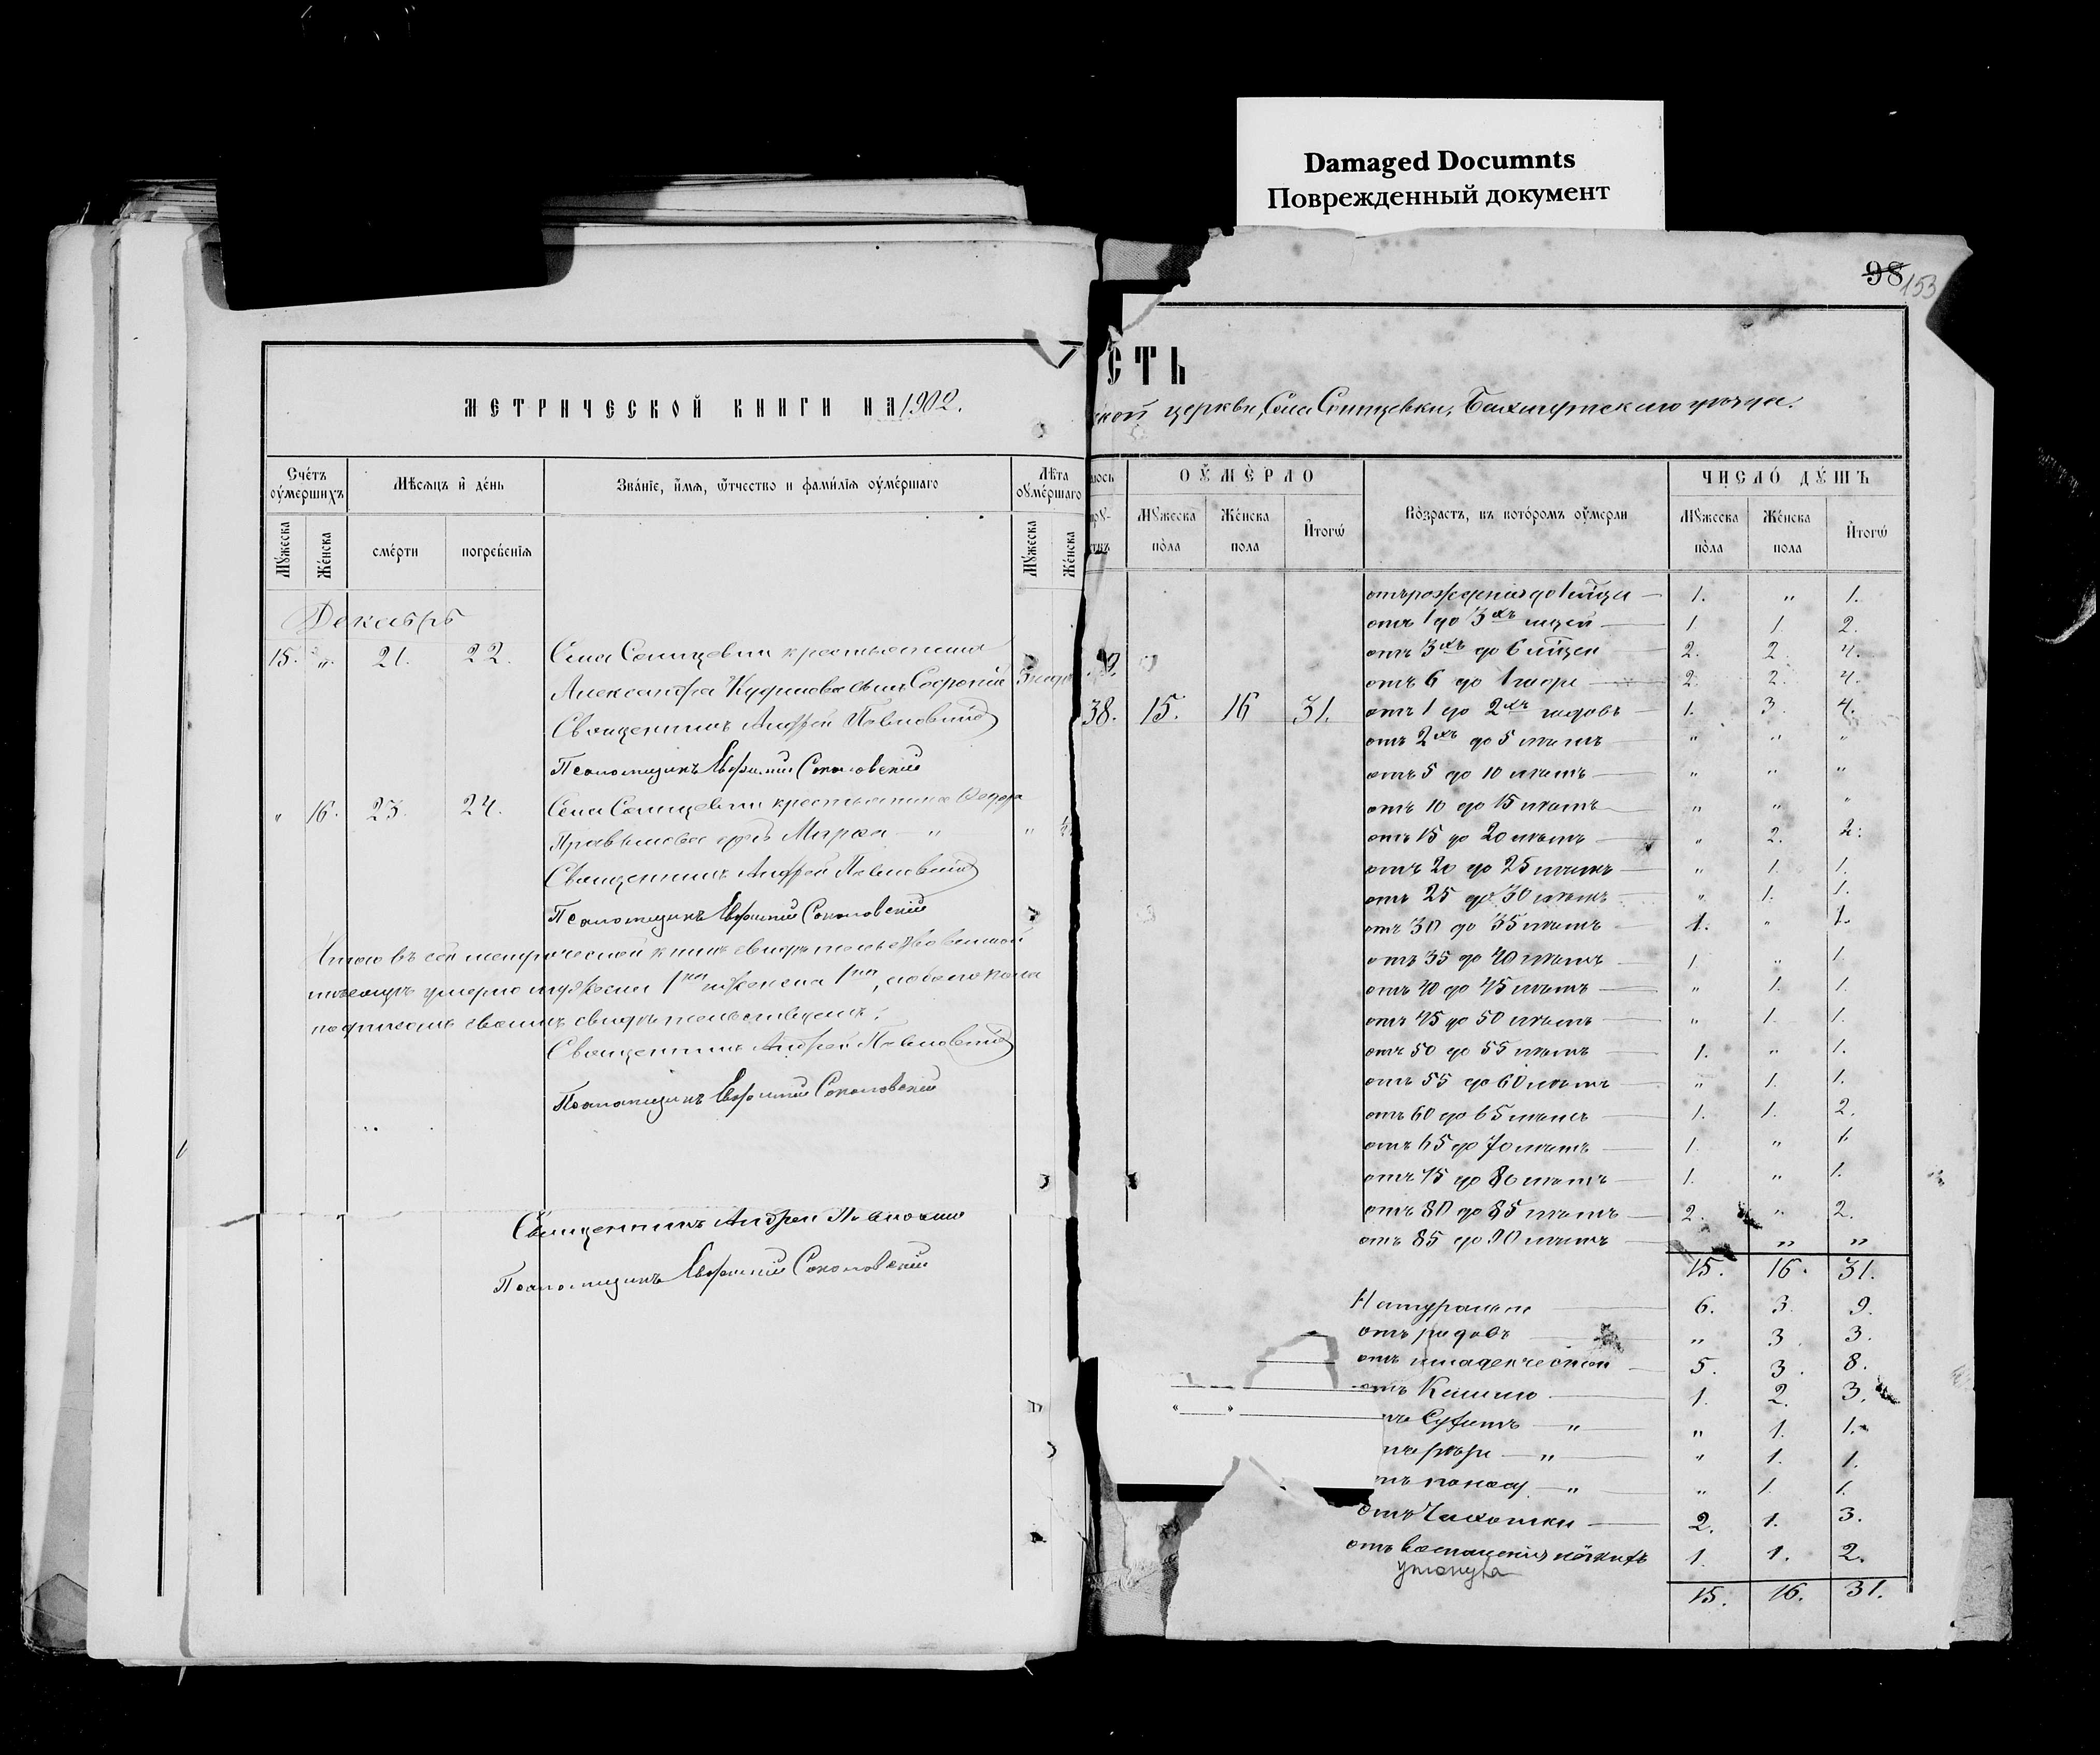 Damaged Documnts
Поврежденный документ
98
153
МЕТРИЧЕСКОЙ КНИГИ НА 1902.
Счетъ оумершихъ
Мѣсяцъ и день
Званіе, имя, отчество и фамилія оумершаго
Лѣта оумершаго
Мужеска
Женска
смерти
погребенія
Мужеска
Женска
Декабрь
15. " 21. 22. Села Солнцевки крестьянина
Александра Кудинова сынъ Софроній
Священникъ Андрей Павловскій
Псаломщикъ Евфимій Соколовскій
" 16. 23. 24. Села Солнцевки крестьянина Ѳедора
дочь Марѳа "
Священникъ Андрей Павловскій
Псаломщикъ Евфимій Соколовскій
Итого въ сей метрической книгѣ
мѣсяцѣ умерло мужеска 1 женска 1, обоего пола
подписомъ своимъ свидѣтельствуемъ:
Священникъ Андрей Павловскій
Псаломщикъ Евфимій Соколовскій
Священникъ Андрей Павловскій
Псаломщикъ Евфимій Соколовскій
СТЬ
ской церкви, Села Солнцевки, Бахмутскаго уѣзда.
ОУМЕРЛО
Возрастъ, въ которомъ оумерли
ЧИСЛО ДУШЪ
Мужеска пола
Женска пола
Итого
Мужеска пола
Женска пола
Итого
38. 15. 16 31.
отъ рожденія до 1 мѣсяца 1. " 1.
отъ 1 до 3хъ мѣсяцей 1. 1. 2.
отъ 3хъ до 6 мѣсяцей 2. 2. 4.
отъ 6 до 1 года 2. 2. 4.
отъ 1 до 2хъ годовъ 1. 3. 4.
отъ 2хъ до 5 лѣтъ " " "
отъ 5 до 10 лѣтъ " " "
отъ 10 до 15 лѣтъ " " "
отъ 15 до 20 лѣтъ " 2. 2.
отъ 20 до 25 лѣтъ " 1. 1.
отъ 25 до 30 лѣтъ " 1. 1.
отъ 30 до 35 лѣтъ 1. " 1.
отъ 35 до 40 лѣтъ 1. " 1.
отъ 40 до 45 лѣтъ " 1. 1.
отъ 45 до 50 лѣтъ " 1. 1.
отъ 50 до 55 лѣтъ 1. " 1.
отъ 55 до 60 лѣтъ " 1. 1.
отъ 60 до 65 лѣтъ 1. 1. 2.
отъ 65 до 70 лѣтъ 1. " 1.
отъ 75 до 80 лѣтъ 1. " 1.
отъ 80 до 85 лѣтъ 2. " 2.
отъ 85 до 90 лѣтъ " "
15. 16. 31.
Натурально 6. 3. 9.
отъ родовъ " 3. 3.
отъ младенческой 5. 3. 8.
отъ Кашлю 1. 2. 3.
" " 1. 1.
" " 1. 1.
поносу " " 1. 1.
отъ Чахотки 2. 1. 3.
отъ воспаленія легкихъ 1. 1. 2.
15. 16. 31.